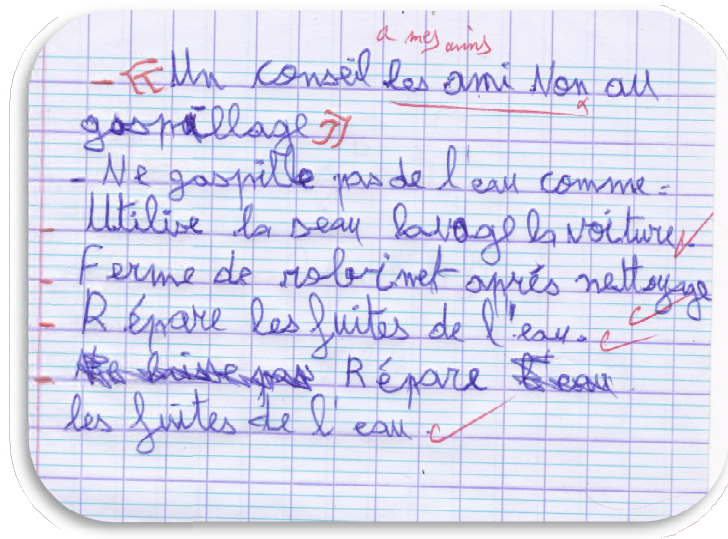 à mes amis
- « Un conseil les ami Non au
gaspillage »
- Ne gaspille pas de l'eau comme =
Utilise la seau lavage la voiture.
- Ferme de robinet après nettoyage
- Répare les fuites de l'eau.
- Répare
les fuites de l'eau.